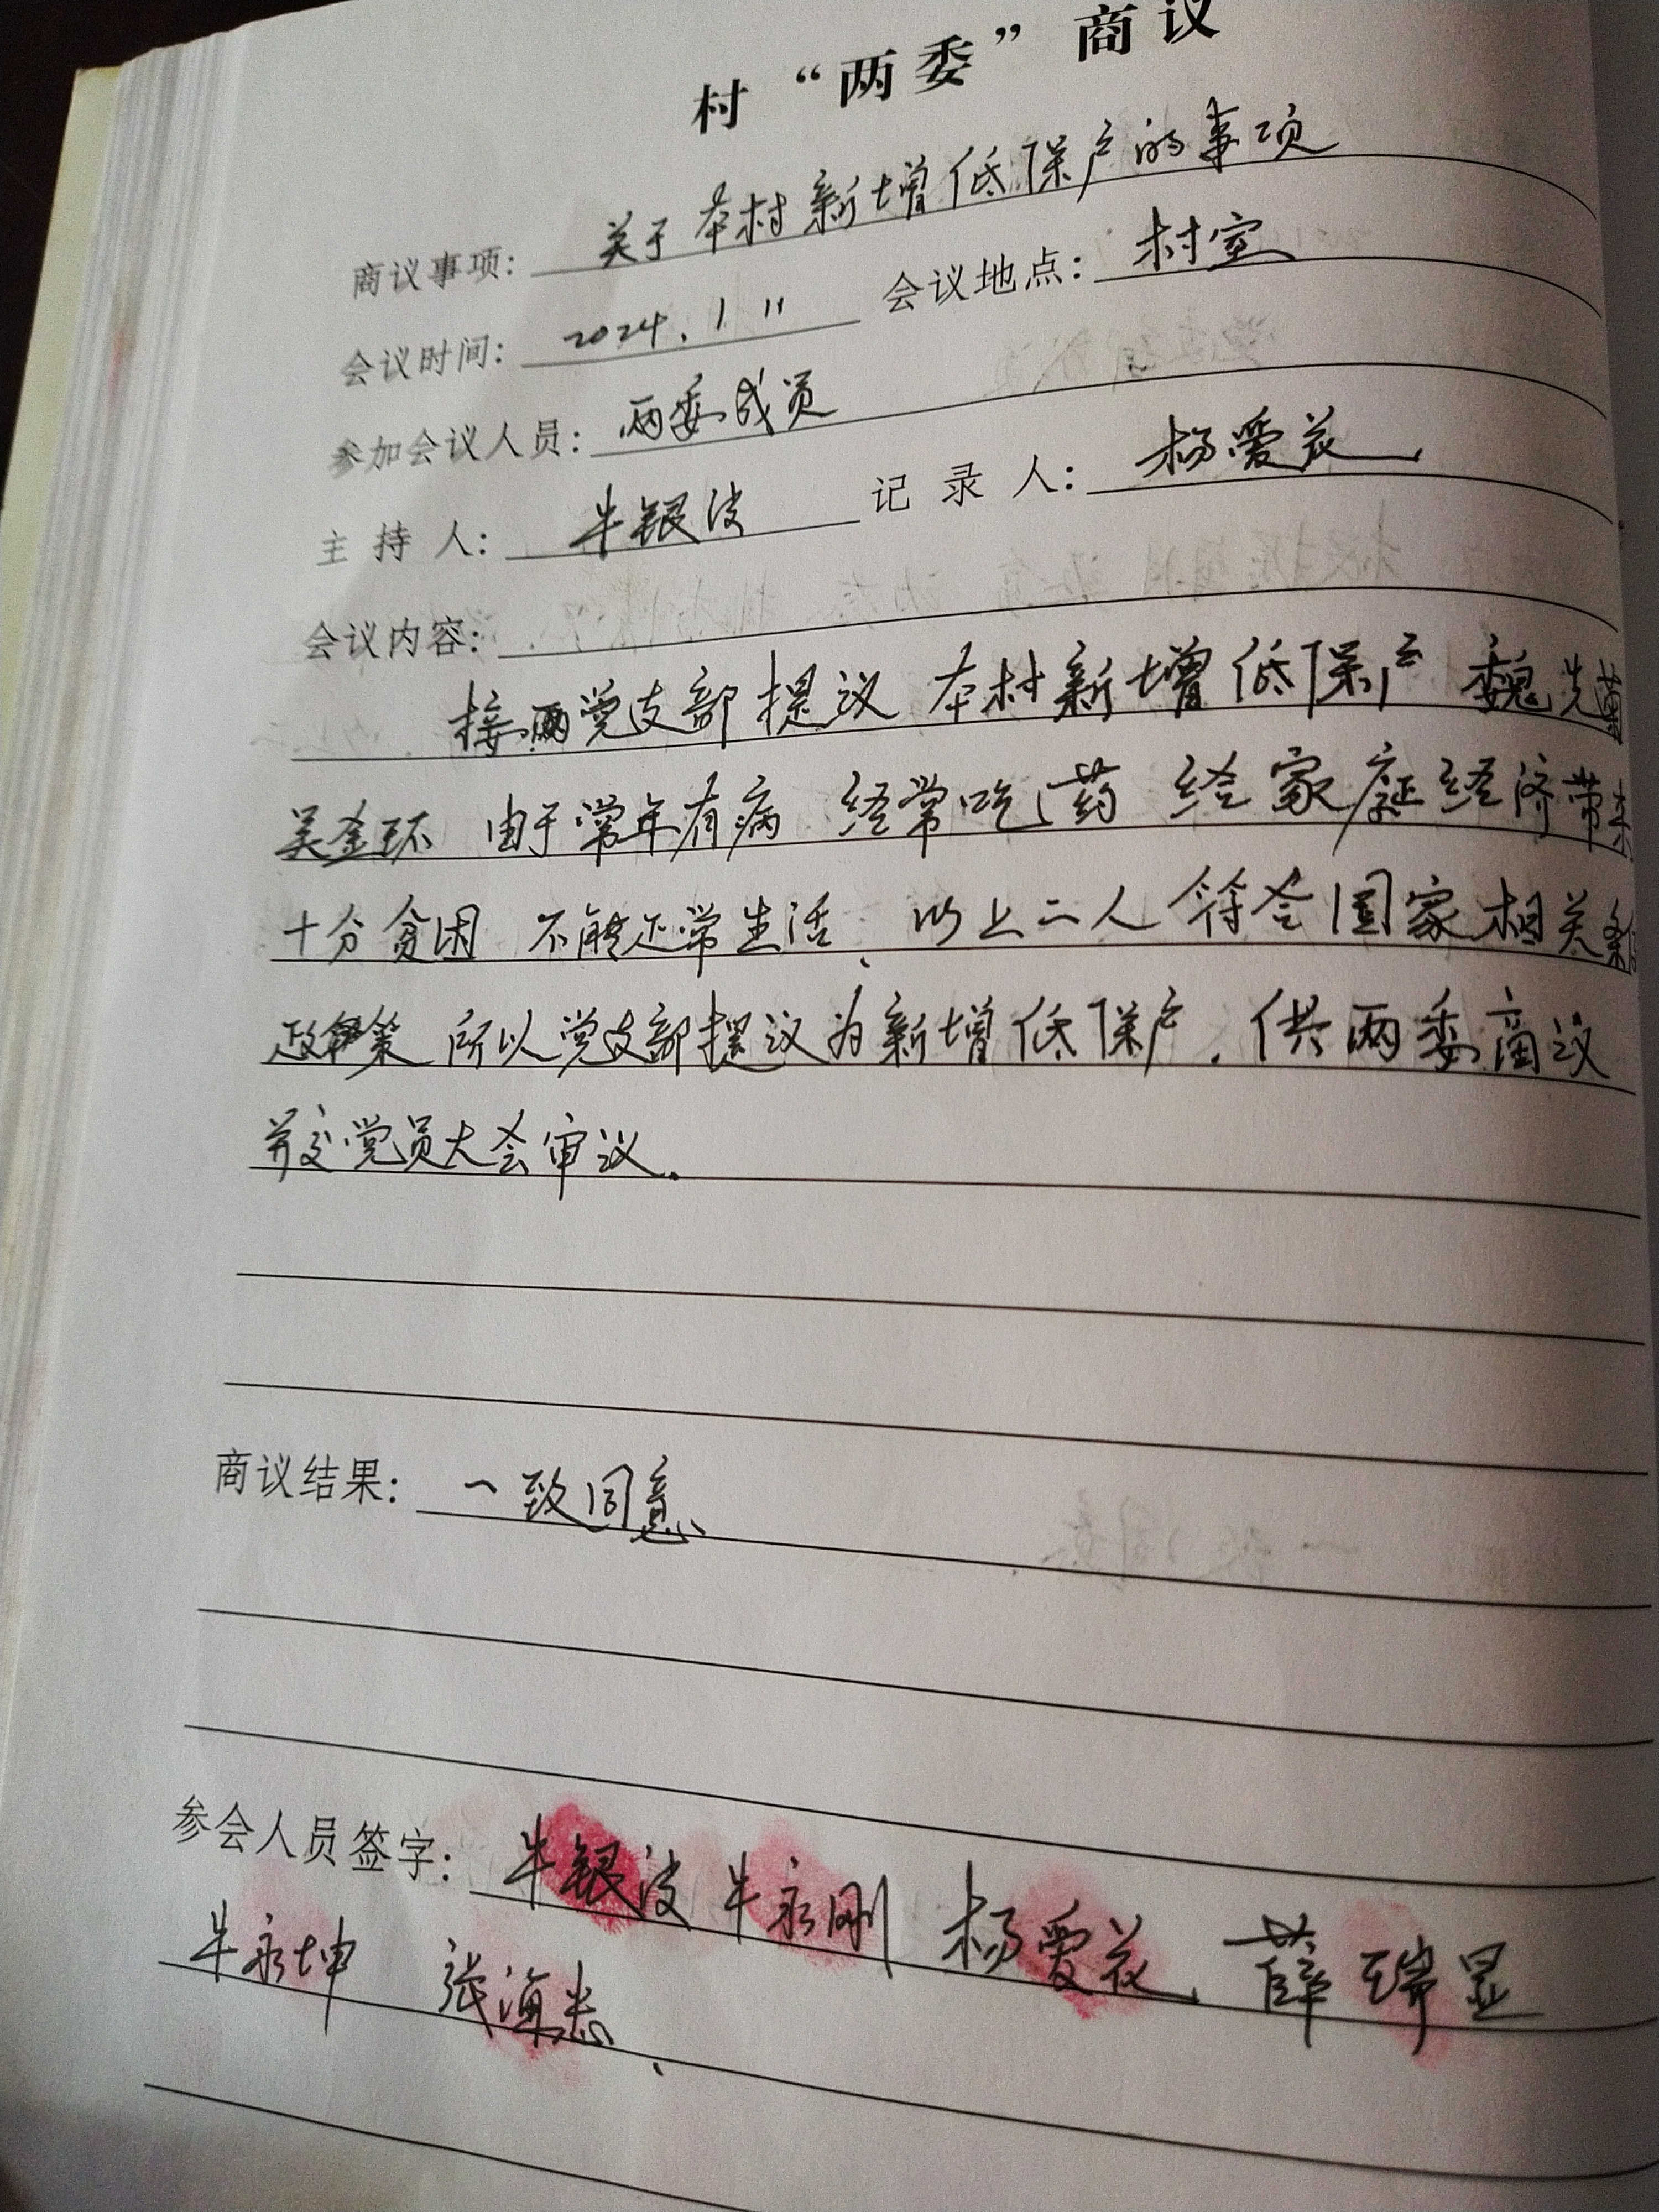 村“两委”商议
商议事项：关于本村新增低保户的事项
会议时间：2024.1 11 会议地点：村室
参加会议人员：两委成员
主持人：牛银波 记录人：杨爱花
会议内容：
接党支部提议 本村新增低保户 魏先菊
吴金环 由于常年有病 经常吃药 给家庭经济带来
十分贫困 不能正常生活、以上二人符合国家相关
政策 所以党支部提议为新增低保户，供两委商议
并交党员大会审议。
商议结果：一致同意
参会人员签字：牛银波 牛永刚 杨爱花、薛瑞显
牛永坤 张海